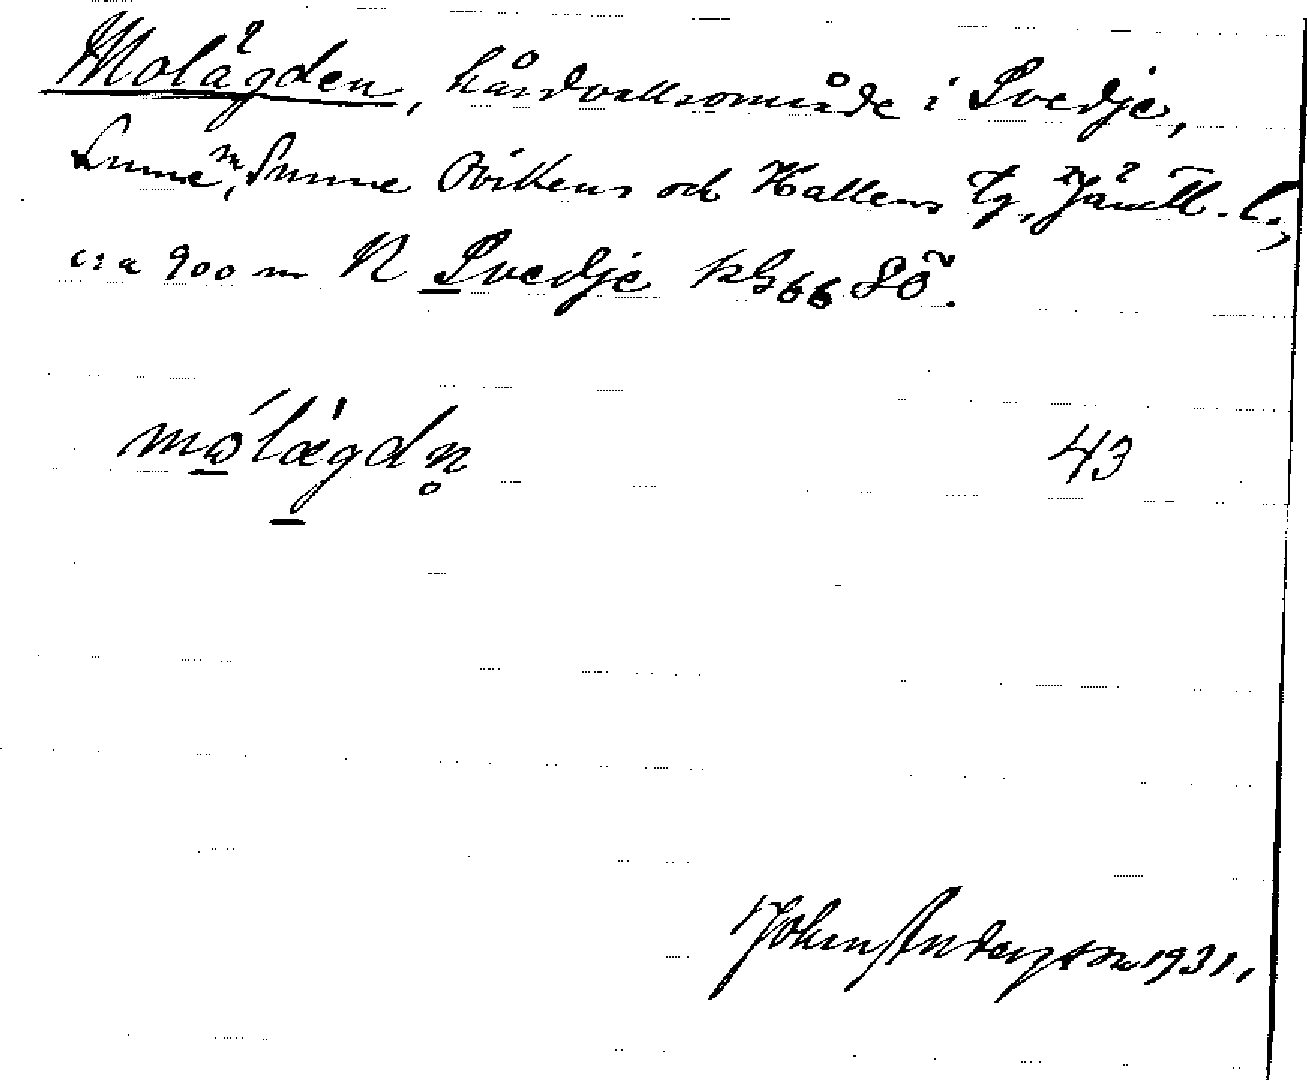 Molägden, hårdvallsområde i Svedje,
Sunne sn, Sunne Ovikens och Hallens tg, Jämtl. l.,
c:a 900 m N Svedje
mólägdn̥ 43
John Anderson 1931.